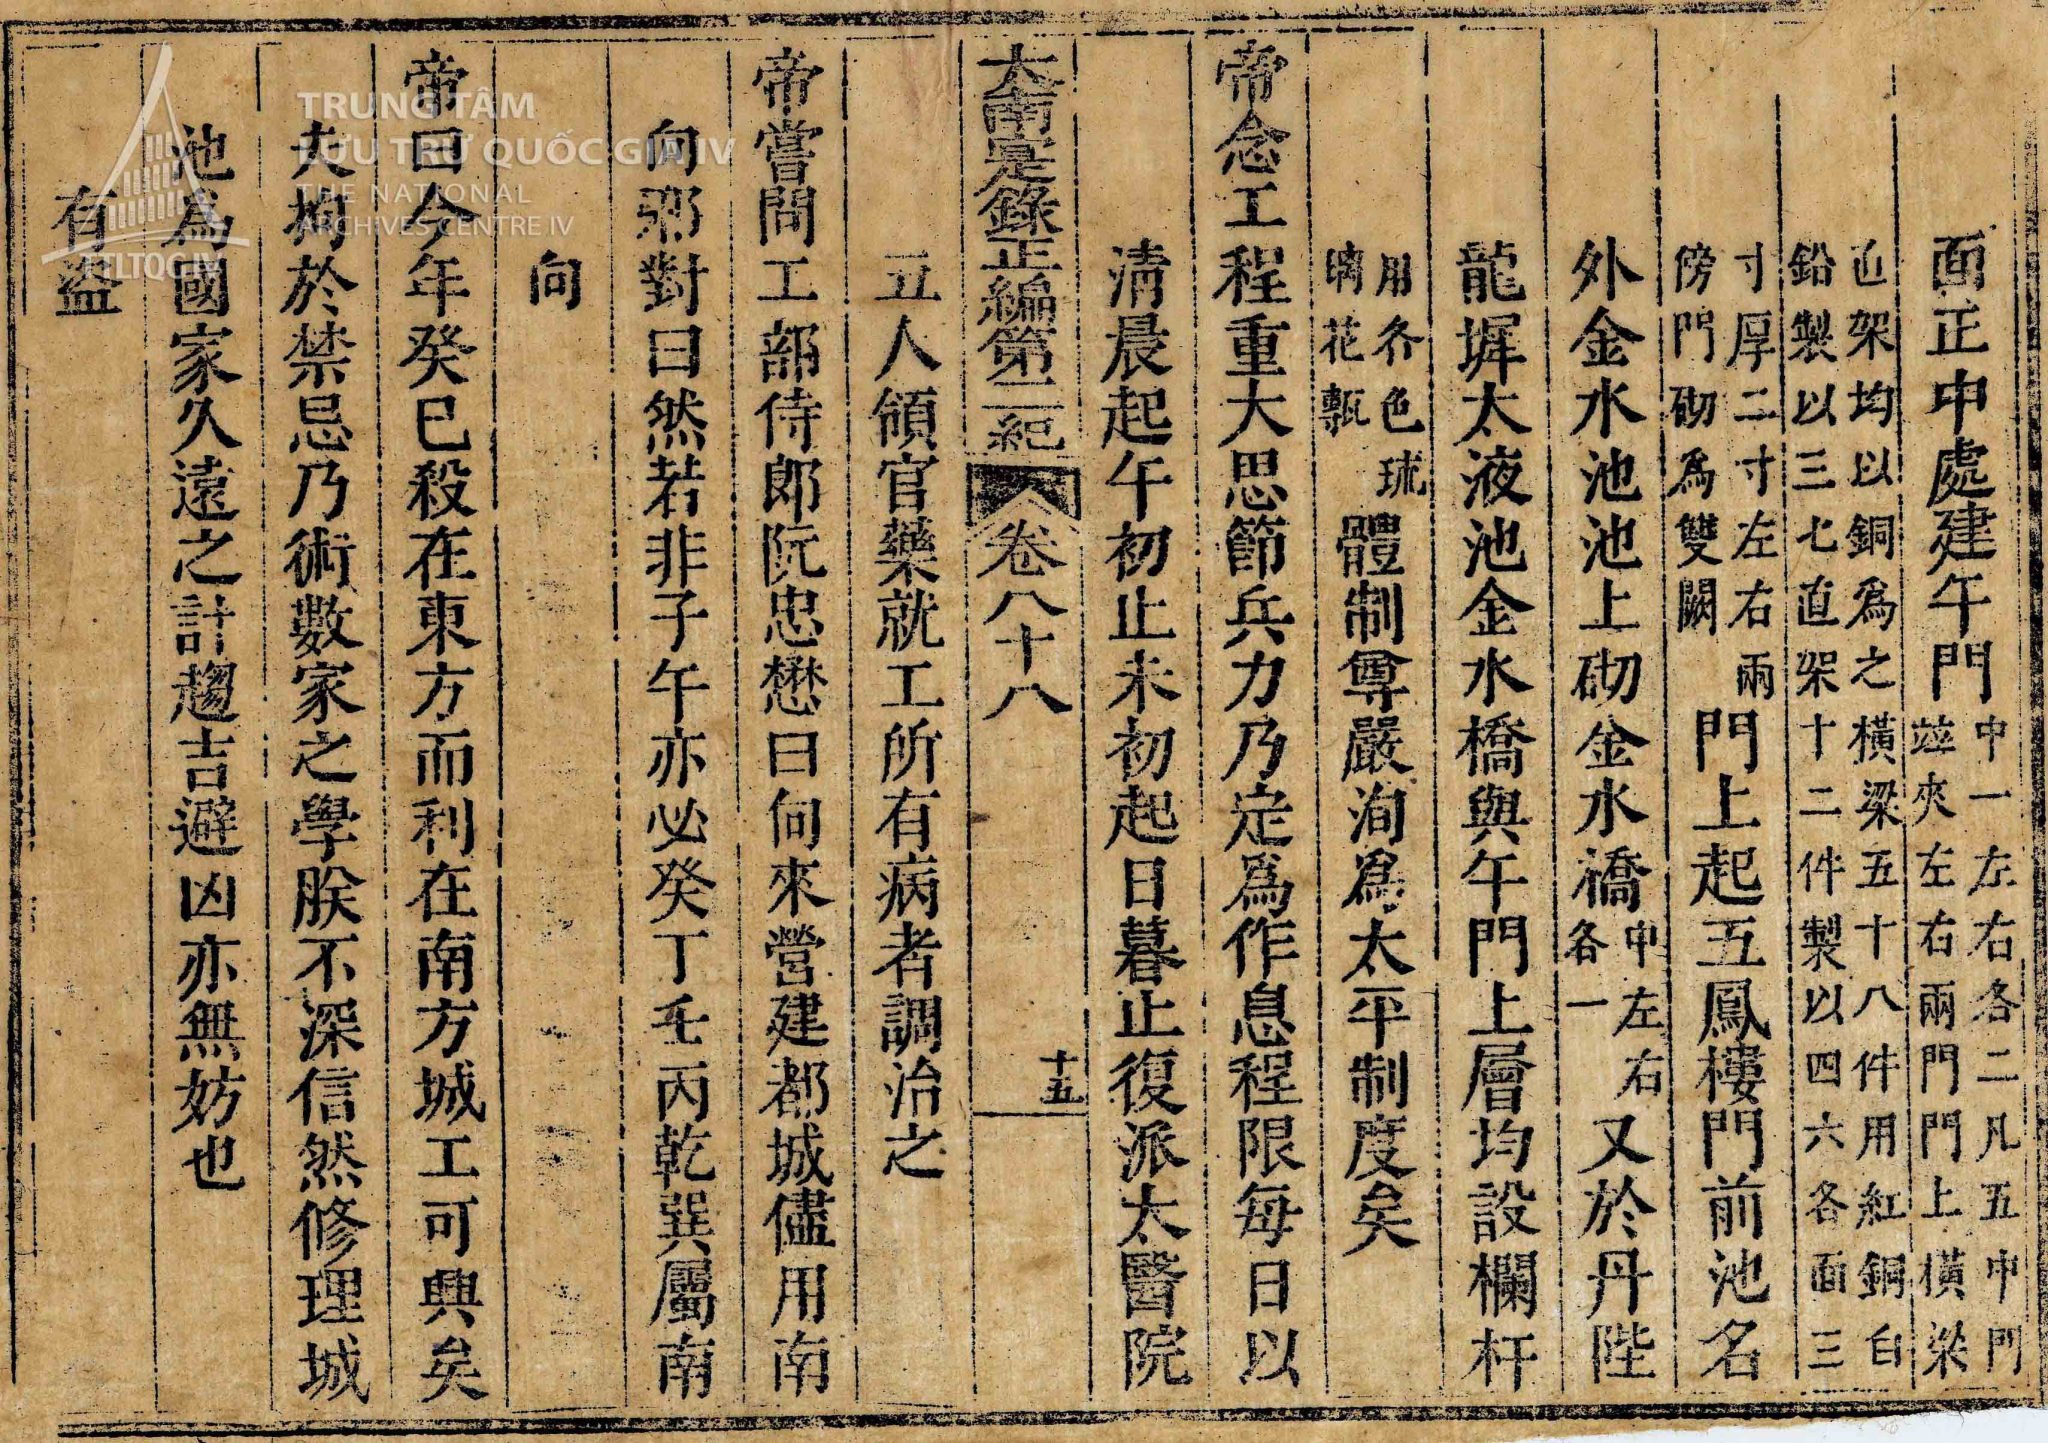 面正中處建午門中一左右各二凡五中門竝夾左右兩門門上橫梁
直架均以銅爲之橫梁五十八件用紅銅白鉛製以三七直架十二件製以四六各面三
寸厚二寸左右兩傍門砌爲雙闕門上起五鳳樓門前池名
外金水池池上砌金水橋中左右各一又於丹陛
龍墀太液池金水橋與午門上層均設欄杆
用各色琉璃花甎體制尊嚴洵爲太平制度矣
帝念工程重大思節兵力乃定爲作息程限每日以
清晨起午初止未初起日暮止復派太醫院
大南寔錄正編第二紀 卷八十八 十五
五人領官藥就工所有病者調治之
帝嘗問工部侍郎阮忠懋曰向來營建都城儘用南
向邪對曰然若非子午亦必癸丁壬丙乾巽屬南
向
帝曰今年癸巳殺在東方而利在南方城工可興矣
夫拘於禁忌乃術數家之學朕不深信然修理城
池爲國家久遠之計趨吉避凶亦無妨也
有盜
TRUNG TÂM
LƯU TRỮ QUỐC GIA IV
THE NATIONAL
ARCHIVES CENTRE IV
TTLTQG IV